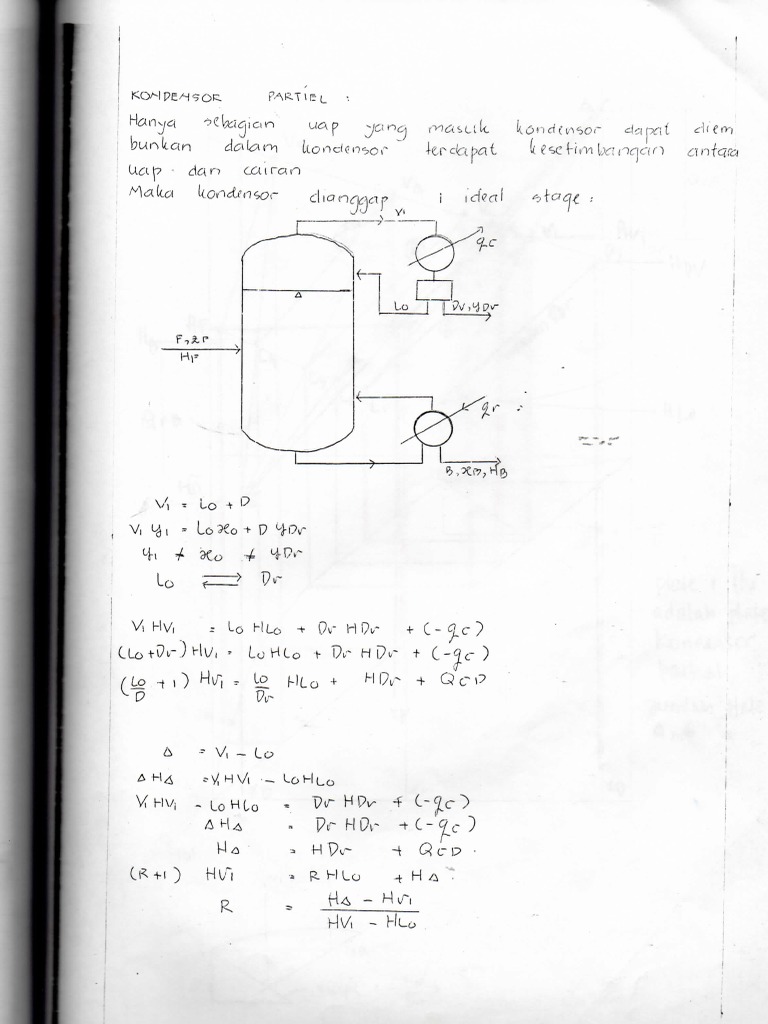 KONDENSOR PARTIEL :
Hanya sebagian uap yang masuk kondensor dapat diem
bunkan dalam kondensor terdapat kesetimbangan antara
uap dan cairan
Maka kondensor dianggap 1 ideal stage :
V1
qc
Lo
Dv, yDv
Δ
F, zF
HF
qr
B, xB, HB
V1 = Lo + D
V1 y1 = Lo xo + D yDv
y1 ≠ xo ≠ yDv
Lo ⇌ Dv
V1 HV1 = Lo HLo + Dv HDv + (-qc)
(Lo+Dv) HV1 = Lo HLo + Dv HDv + (-qc)
(Lo/D + 1) HV1 = Lo/Dv HLo + HDv + QCD
Δ = V1 - Lo
Δ HΔ = V1 HV1 - Lo HLo
V1 HV1 - Lo HLo = Dv HDv + (-qc)
Δ HΔ = Dv HDv + (-qc)
HΔ = HDv + QCD.
(R+1) HV1 = R HLo + HΔ.
R = (HΔ - HV1)/(HV1 - HLo)